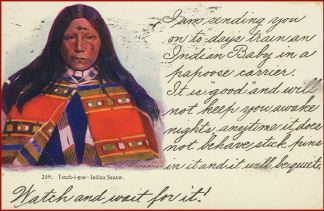 I am sending you
on to-day's train an
Indian Baby in a
papoose carrier.
It is "good" and will
not keep you awake
nights, anytime it does
not behave, stick pins
in it and it will be quiet.
209. Touch-i-goo—Indian Squaw.
Watch and wait for it!